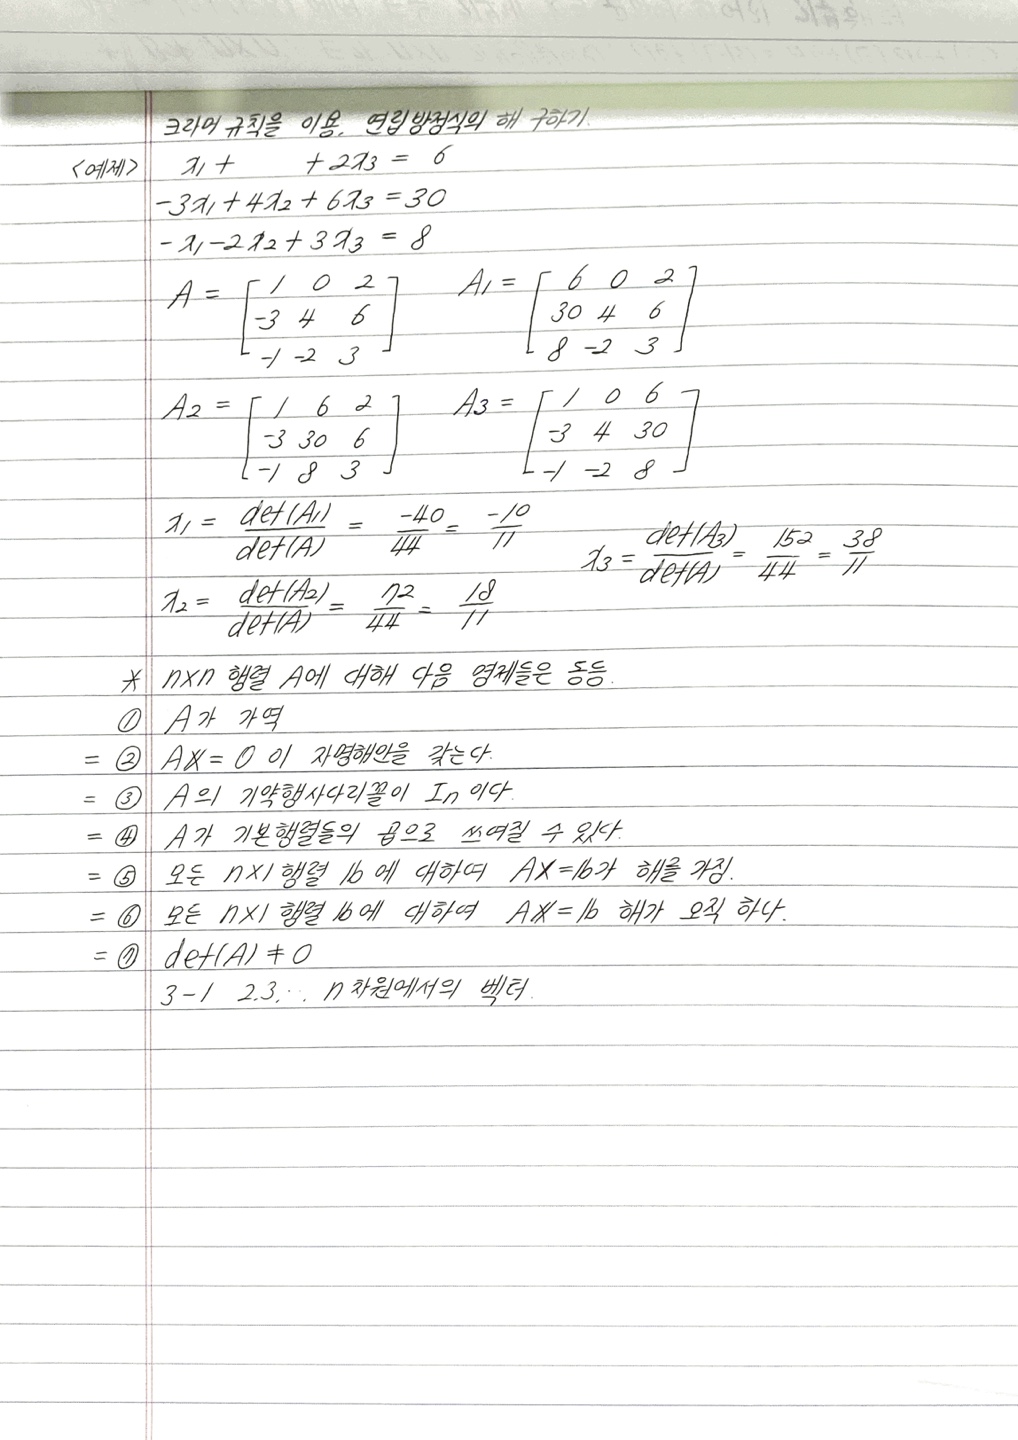 크라머 규칙을 이용, 연립방정식의 해 구하기.
<예제> x₁ + + 2x₃ = 6
-3x₁ + 4x₂ + 6x₃ = 30
-x₁ - 2x₂ + 3x₃ = 8
A = [1 0 2 A₁ = [6 0 2
-3 4 6 30 4 6
-1 -2 3] 8 -2 3]
A₂ = [1 6 2 A₃ = [1 0 6
-3 30 6 -3 4 30
-1 8 3] -1 -2 8]
x₁ = det(A₁)/det(A) = -40/44 = -10/11
x₃ = det(A₃)/det(A) = 152/44 = 38/11
x₂ = det(A₂)/det(A) = 72/44 = 18/11
* n×n 행렬 A에 대해 다음 명제들은 동등.
① A가 가역
= ② A𝕩 = 0 이 자명해만을 갖는다.
= ③ A의 기약행사다리꼴이 In 이다.
= ④ A가 기본행렬들의 곱으로 쓰여질 수 있다.
= ⑤ 모든 n×1 행렬 𝕓에 대하여 A𝕩=𝕓가 해를 가짐.
= ⑥ 모든 n×1 행렬 𝕓에 대하여 A𝕩=𝕓 해가 오직 하나.
= ⑦ det(A) ≠ 0
3-1 2.3.… n차원에서의 벡터.